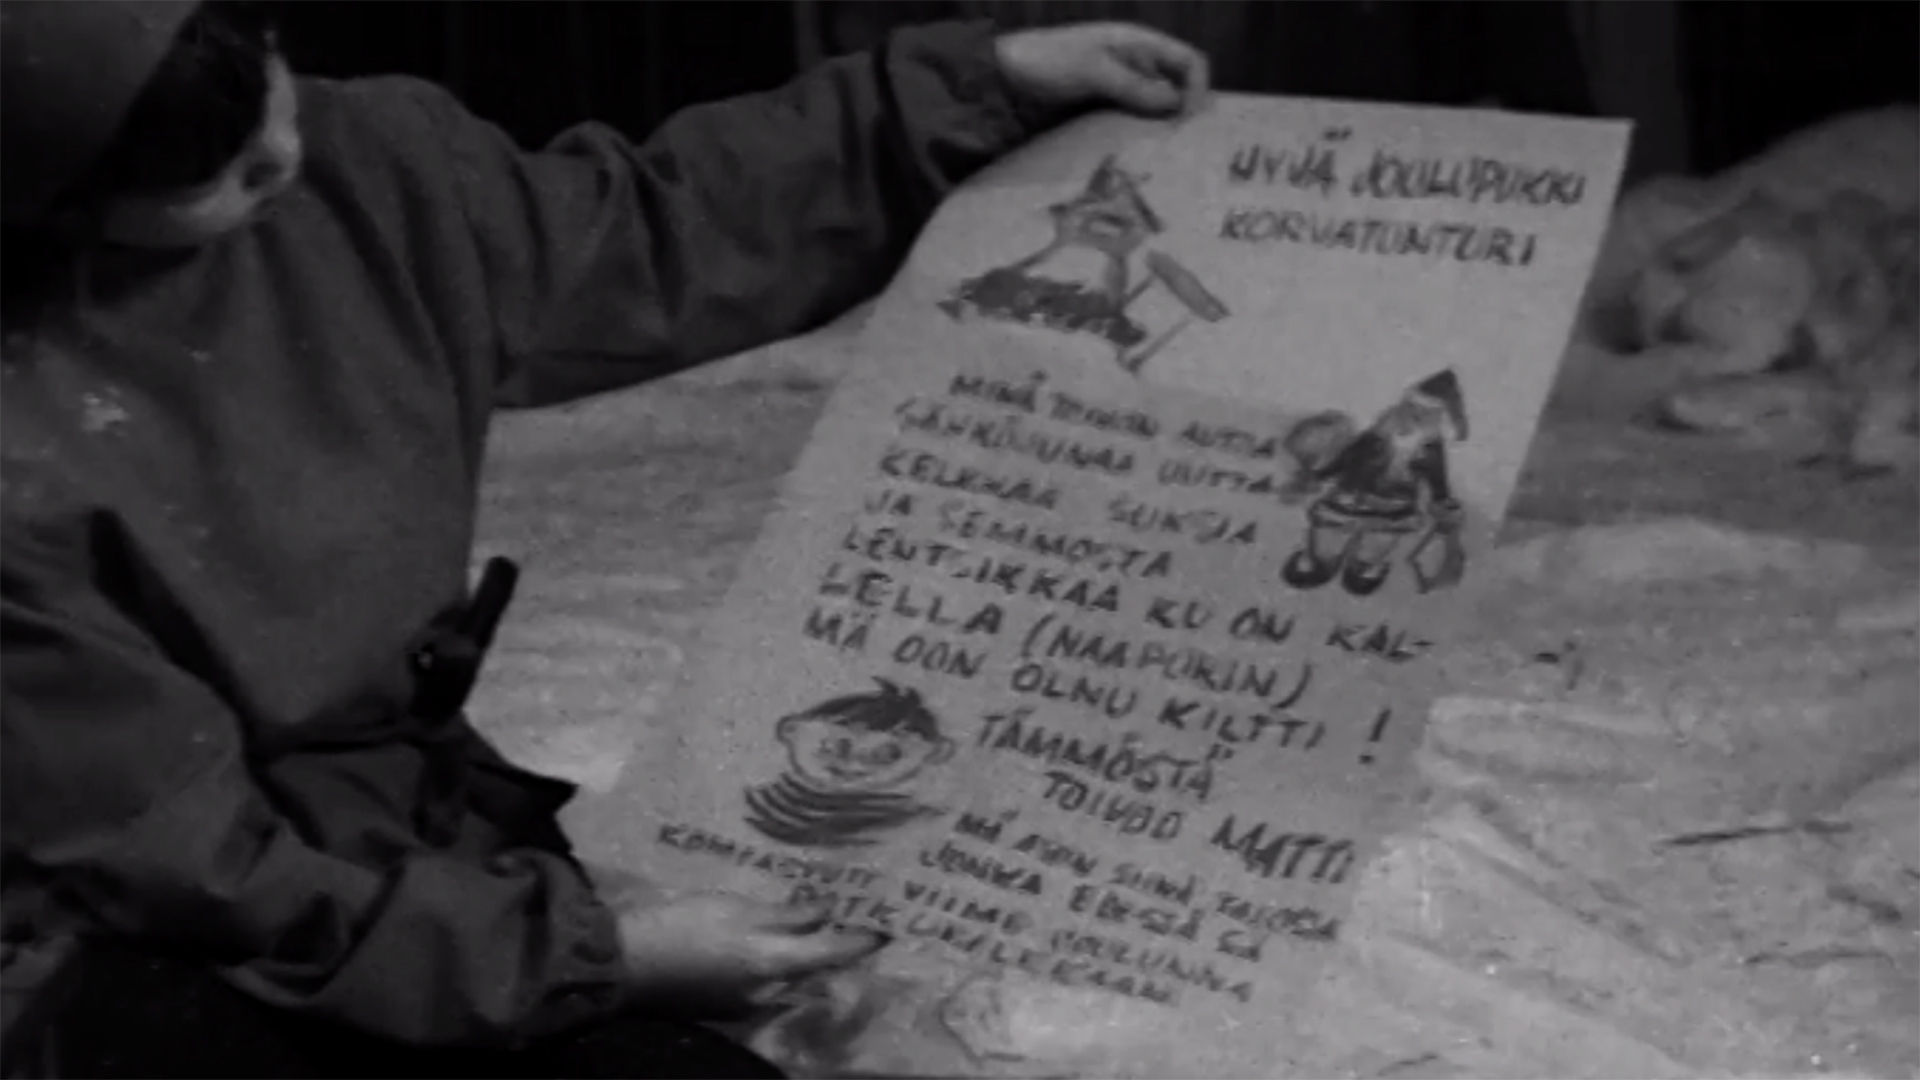 HYVÄ JOULUPUKKI
KORVATUNTURI
MINÄ TOIVON AUTOA
SÄHKÖJUNAA UUTTA
KELKKAA SUKSIA
JA SEMMOSTA
LENTSIKKAA KU ON KAL-
LELLA (NAAPURIN)
MÄ OON OLNU KILTTI !
TÄMMÖSTÄ
TOIVOO MATTI
MÄ ASUN SIINÄ TALOSSA
JONKA EDESSÄ SÄ
KOMPASTUIT VIIME JOULUNNA
POTKUKELKKAAN